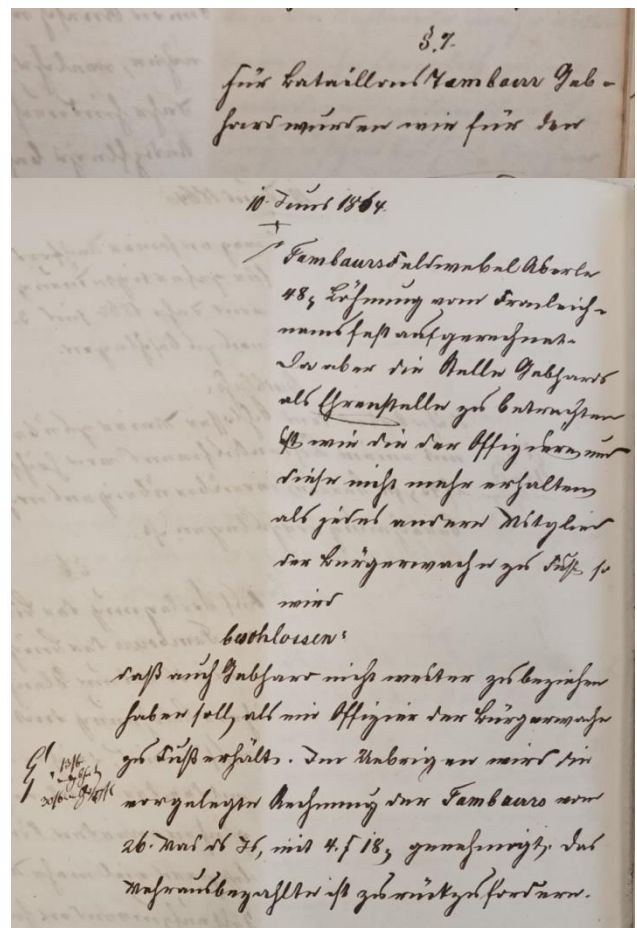 §. 7.
Für Bataillons Tambour Geb-
hard wurden wie für den
10. Juni 1864.
Tambours Feldwebel Aberle
48 Löhnung vom Fronleich-
namsfest aufgerechnet.
Da aber die Stelle Gebhards
als Ehrenstelle zu betrachten
ist wie die der Offiziere, und
diese nicht mehr erhalten,
als jedes andere Mitglied
der Bürgerwache zu Fuß, so
wird
beschlossen:
daß auch Gebhard nicht weiter zu beziehen
haben soll, als ein Offizier der Bürgerwache
zu Fuß erhält. Im Uebrigen wird die
vorgelegte Rechnung der Tambours vom
26. Mai ds Js, mit 4. f 18 genehmigt. Das
Mehrausbezahlte ist zurückzufordern.